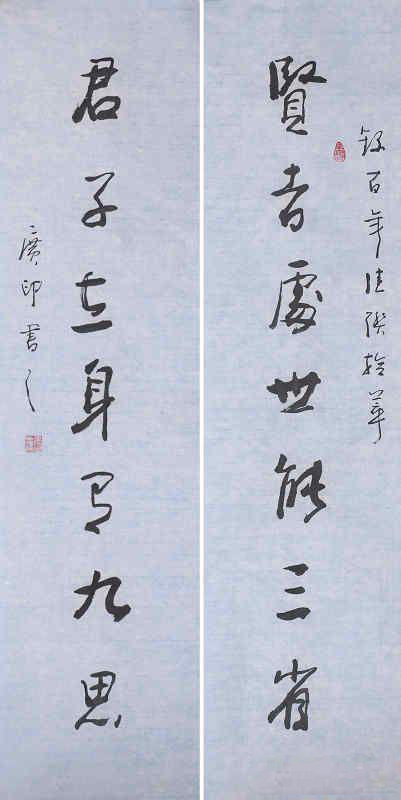 錄百年佳聯拾萃
賢者處世能三省
君子立身有九思
廣印書之